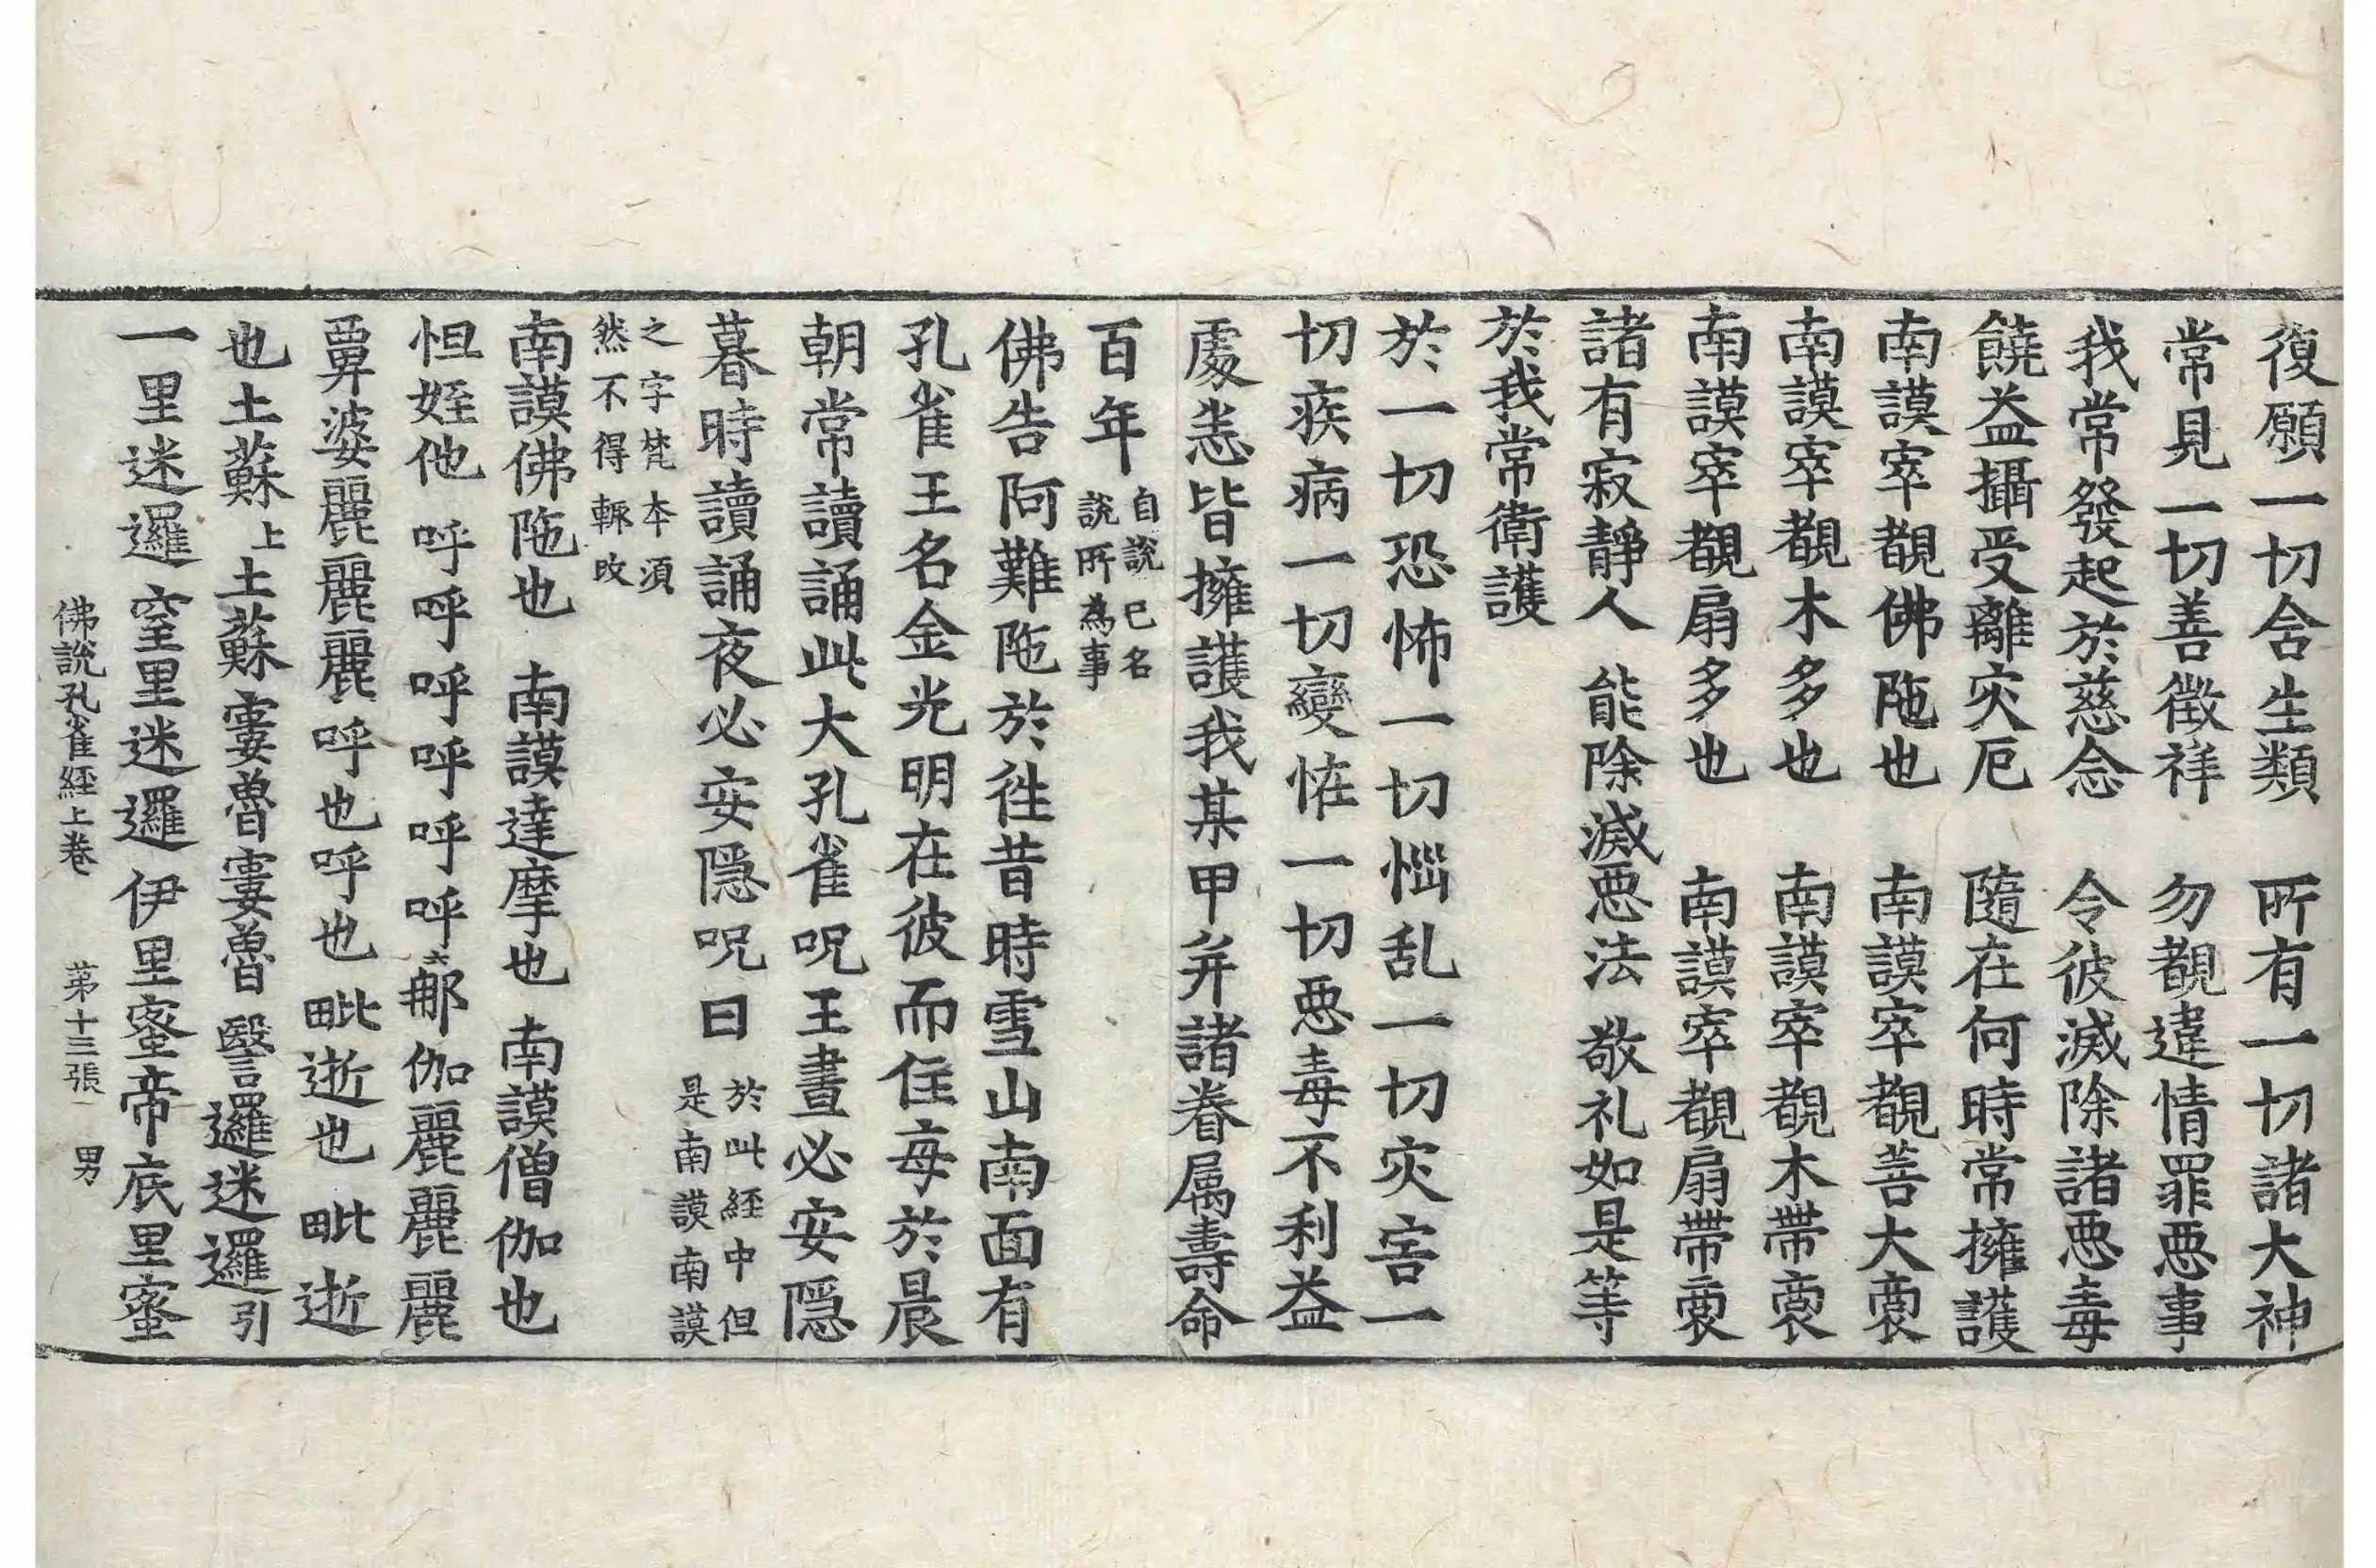 復願一切含生類　所有一切諸大神
常見一切善徵祥　勿覩違情罪惡事
我常發起於慈念　令彼滅除諸惡毒
饒益攝受離灾厄　隨在何時常擁護
南謨窣覩佛陁也　南謨窣覩菩大裒
南謨窣覩木多也　南謨窣覩木帶裒
南謨窣覩扇多也　南謨窣覩扇帶裒
諸有寂靜人　能除滅惡法　敬礼如是等
於我常衛護
於一切恐怖一切惱乱一切灾害一
切疾病一切變恠一切惡毒不利益
處恙皆擁護我某甲并諸眷属壽命
百年自說己名說所為事
佛告阿難陁於徃昔時雪山南面有
孔雀王名金光明在彼而住每於晨
朝常讀誦此大孔雀呪王晝必安隱
暮時讀誦夜必安隱呪曰於此経中但是南謨南謨
之字梵本須然不得輙改
南謨佛陁也　南謨達摩也　南謨僧伽也
怛姪他　呼呼呼呼呼呼六那伽麗麗麗
畀婆麗麗麗呼也呼也毗逝也毗逝
也土蘇上土蘇寠魯寠魯瑿邏迷邏引
一里迷邏窒里迷邏伊里蜜帝底里蜜
佛說孔雀経上卷　苐十三張　男